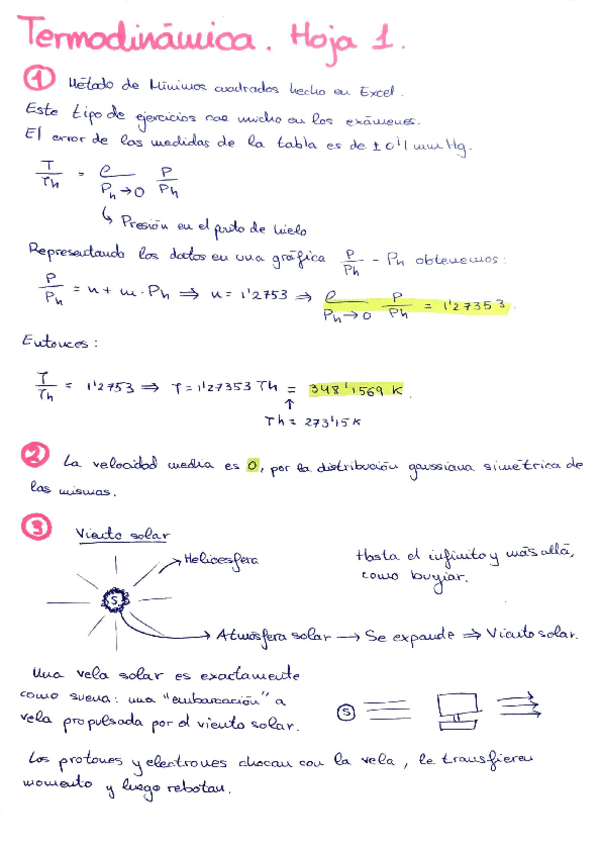 Termodinámica. Hoja 1.
1 Método de Mínimos cuadrados hecho en Excel.
Este tipo de ejercicios cae mucho en los exámenes.
El error de las medidas de la tabla es de ± 0'1 mm Hg.
T/Th = l Ph→0 P/Ph
↳ Presión en el punto de hielo
Representando los datos en una gráfica P/Ph - Ph obtenemos:
P/Ph = n + m · Ph ⇒ n = 1'2753 ⇒ l Ph→0 P/Ph = 1'27353.
Entonces:
T/Th = 1'2753 ⇒ T = 1'27353 Th = 348'1569 K.
↑
Th = 273'15 K
2 La velocidad media es 0, por la distribución gaussiana simétrica de
las mismas.
3 Viento solar
→ Helioesfera
Hasta el infinito y más allá,
como buyiar.
S
→ Atmósfera solar → Se expande ⇒ Viento solar.
Una vela solar es exactamente
como suena: una "embarcación" a
vela propulsada por el viento solar.
S
Los protones y electrones chocan con la vela, le transfieren
momento y luego rebotan.